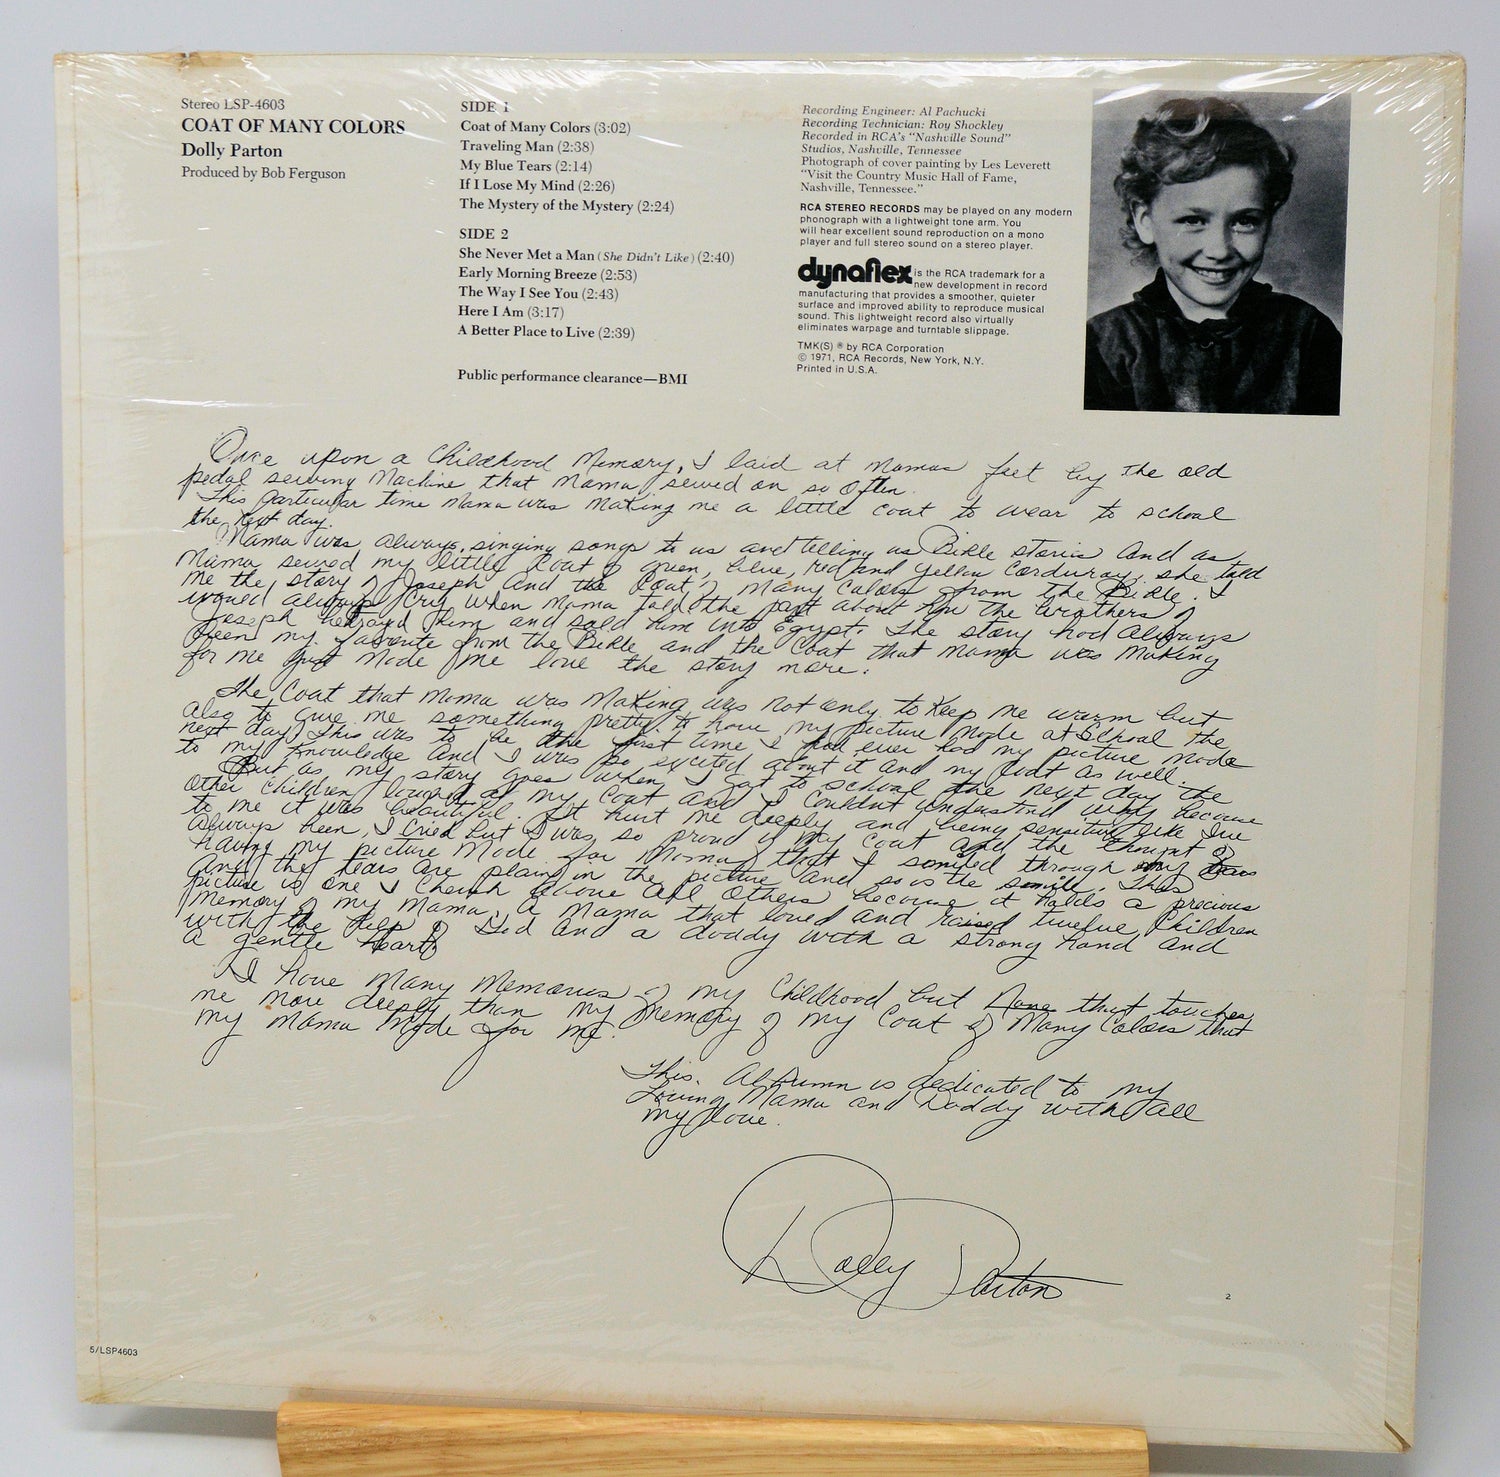 Stereo LSP-4603
COAT OF MANY COLORS
Dolly Parton
Produced by Bob Ferguson
SIDE 1
Coat of Many Colors (3:02)
Traveling Man (2:38)
My Blue Tears (2:14)
If I Lose My Mind (2:26)
The Mystery of the Mystery (2:24)
SIDE 2
She Never Met a Man (She Didn't Like) (2:40)
Early Morning Breeze (2:53)
The Way I See You (2:43)
Here I Am (3:17)
A Better Place to Live (2:39)
Public performance clearance—BMI
Recording Engineer: Al Pachucki
Recording Technician: Roy Shockley
Recorded in RCA's "Nashville Sound"
Studios, Nashville, Tennessee
Photograph of cover painting by Les Leverett
"Visit the Country Music Hall of Fame,
Nashville, Tennessee."
RCA STEREO RECORDS may be played on any modern
phonograph with a lightweight tone arm. You
will hear excellent sound reproduction on a mono
player and full stereo sound on a stereo player.
dynaflex is the RCA trademark for a
new development in record
manufacturing that provides a smoother, quieter
surface and improved ability to reproduce musical
sound. This lightweight record also virtually
eliminates warpage and turntable slippage.
TMK(S) ® by RCA Corporation
© 1971, RCA Records, New York, N.Y.
Printed in U.S.A.
Once upon a Childhood Memory, I laid at Mamas feet by the old
pedal sewing Machine that Mama sewed on so often.
This particular time Mama was Making me a little coat to wear to school
the next day.
Mama was always singing songs to us and telling us Bible stories And as
Mama sewed my little Coat of green, blue, red and yellow Corduroy, she told
me the story of Joseph And the Coat of Many Colors from the Bible. I
would always Cry when Mama told the part about how the brothers of
Joseph betrayed him and sold him into Egypt. The story had always
been my favorite from the Bible and the Coat that Mama was Making
for me just Made me love the story more.
The Coat that Mama was Making was not only to Keep me warm but
also to give me something pretty to have my picture Made at School the
next day. This was to be the first time I had ever had my picture Made
to my Knowledge And I was so excited about it and my coat as well.
But as my story goes when I got to school the next day the
other Children laughed at my Coat and I Couldnt understand why because
to me it was beautiful. It hurt me deeply and being sensitive like Ive
always been, I cried but I was so proud of my Coat and the thought of
having my picture Made for Mama that I smiled through my tears
And the tears are plain in the picture and so is the smile. This
picture is one I cherish above all others because it holds a precious
Memory of my Mama, A Mama that loved and raised twelve Children
with the help of God and a daddy with a strong hand and
a gentle heart.
I have Many Memories of my Childhood but None that touches
me More deeply than my Memory of my Coat of Many Colors that
my Mama Made for me.
This Albumn is dedicated to my
Loving Mama and Daddy with all
my love.
Dolly Parton
2
5/LSP4603